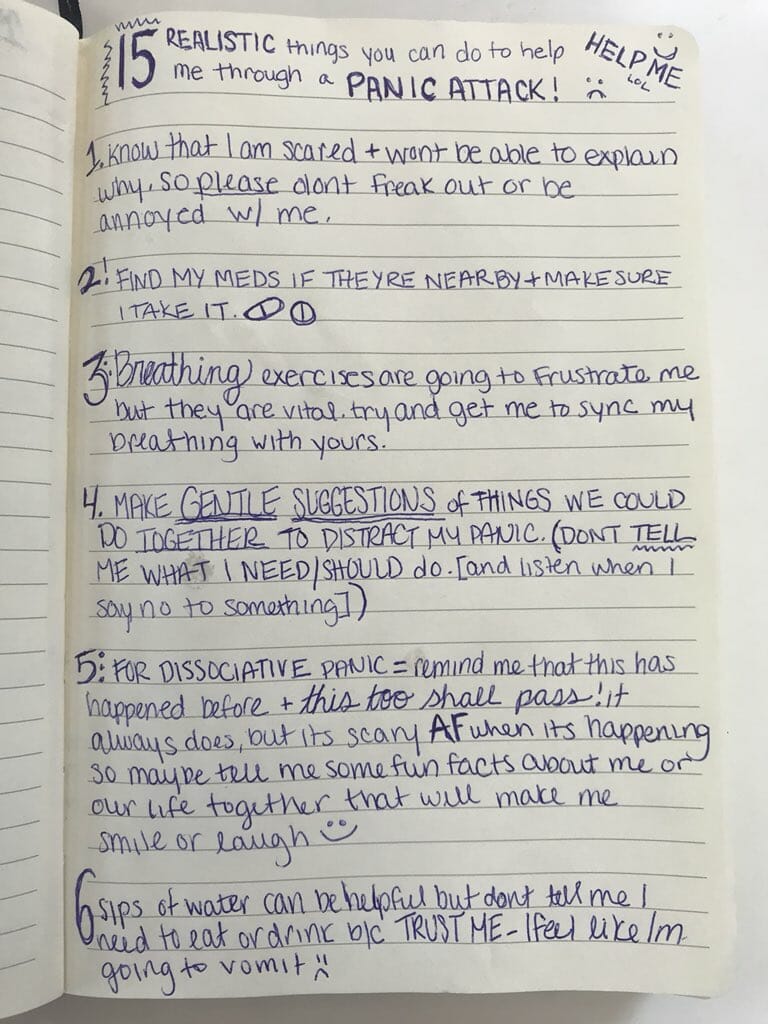 15 REALISTIC things you can do to help
me through a PANIC ATTACK!
HELP ME
LOL
1. Know that I am scared + wont be able to explain
why. so please dont freak out or be
annoyed w/ me.
2! FIND MY MEDS IF THEYRE NEARBY + MAKE SURE
I TAKE IT.
3: Breathing exercises are going to frustrate me
but they are vital. try and get me to sync my
breathing with yours.
4. MAKE GENTLE SUGGESTIONS of THINGS WE COULD
DO TOGETHER TO DISTRACT MY PANIC. (DONT TELL
ME WHAT I NEED/SHOULD do. [and listen when I
say no to something])
5: FOR DISSOCIATIVE PANIC = remind me that this has
happened before + this too shall pass! it
always does, but its scary AF when its happening
so maybe tell me some fun facts about me or
our life together that will make me
smile or laugh
6 sips of water can be helpful but dont tell me I
need to eat or drink b/c TRUST ME - I feel like Im
going to vomit